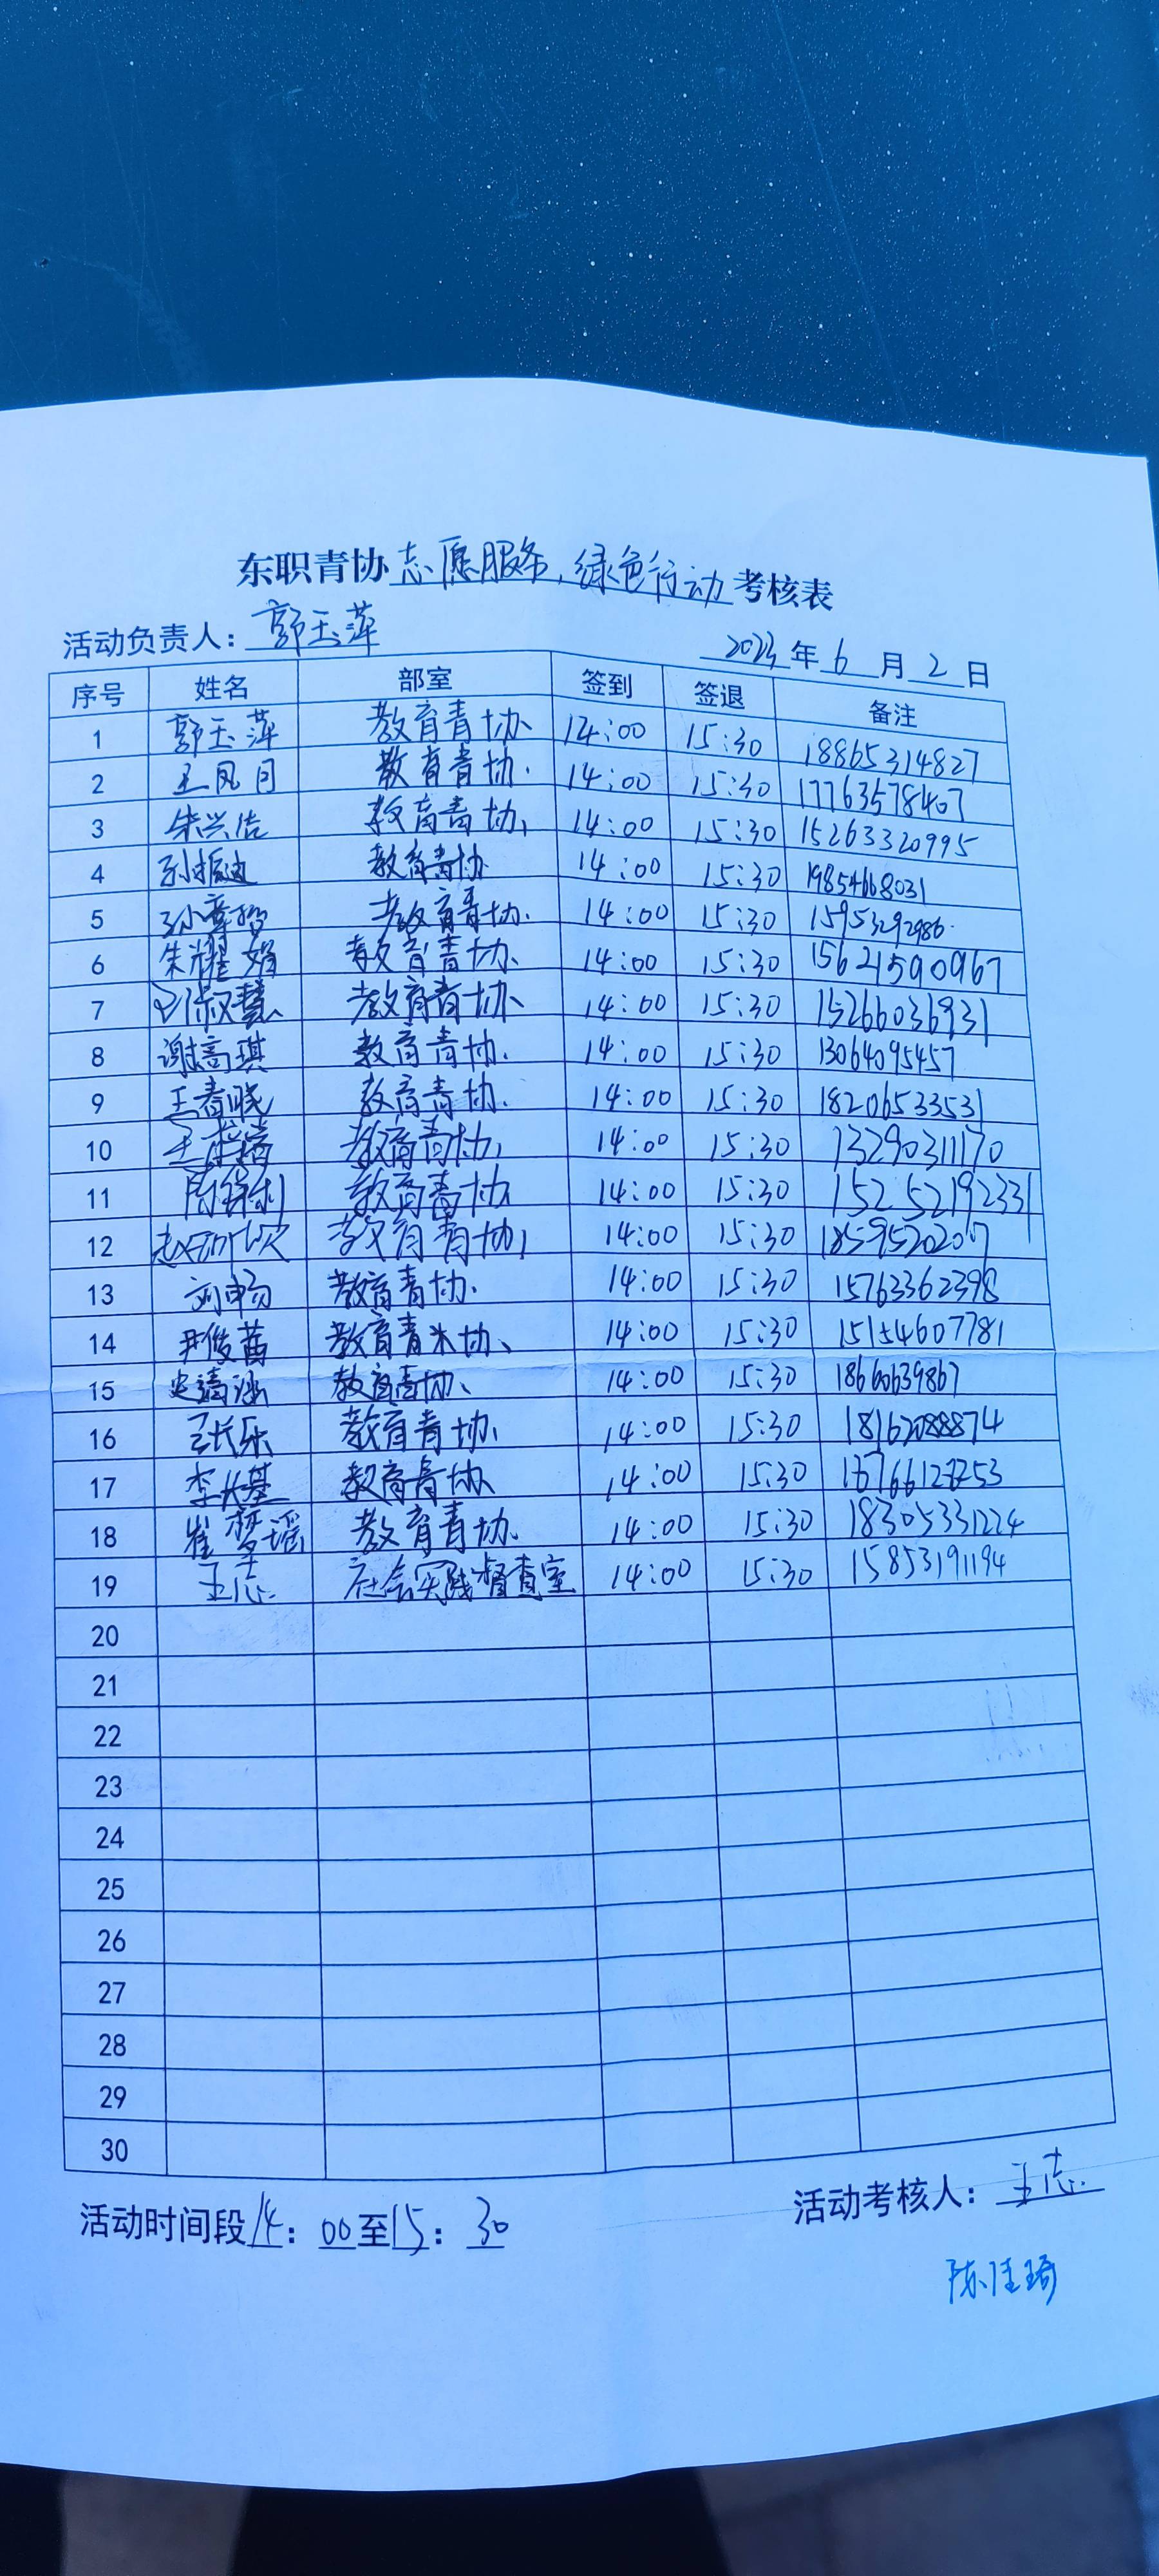 东职青协志愿服务,绿色行动考核表
活动负责人: 郭玉萍
2023年6月2日
序号 姓名 部室 签到 签退 备注
1 郭玉萍 教育青协 14:00 15:30 18865314827
2 王凤月 教育青协. 14:00 15:30 17763578407
3 朱兴洁 教育青协, 14:00 15:30 15263320995
4 孙振迪 教育青协 14:00 15:30 19854668031
5 教育青协. 14:00 15:30 15953292986.
6 朱耀娟 教育青协. 14:00 15:30 15621590967
7 淑慧 教育青协. 14:00 15:30 15266036931
8 谢高琪 教育青协. 14:00 15:30 13064095457
9 王春晓 教育青协. 14:00 15:30 18206533531
10 教育青协, 14:00 15:30 13290311170
11 教育青协 14:00 15:30 15252192331
12 教育青协, 14:00 15:30 18595202007
13 刘畅 教育青协. 14:00 15:30 15763362398
14 尹俊茜 教育青 协、 14:00 15:30 15154607781
15 教育青协、 14:00 15:30 18660639867
16 长乐 教育青协. 14:00 15:30
17 教育青协. 14:00 15:30
18 崔梦瑶 教育青协. 14:00 15:30 18305331224
19 王志. 社会实践督查室 14:00 15:30 15853191194
20
21
22
23
24
25
26
27
28
29
30
活动时间段14:00至15:30
活动考核人: 王志.
陈佳琦